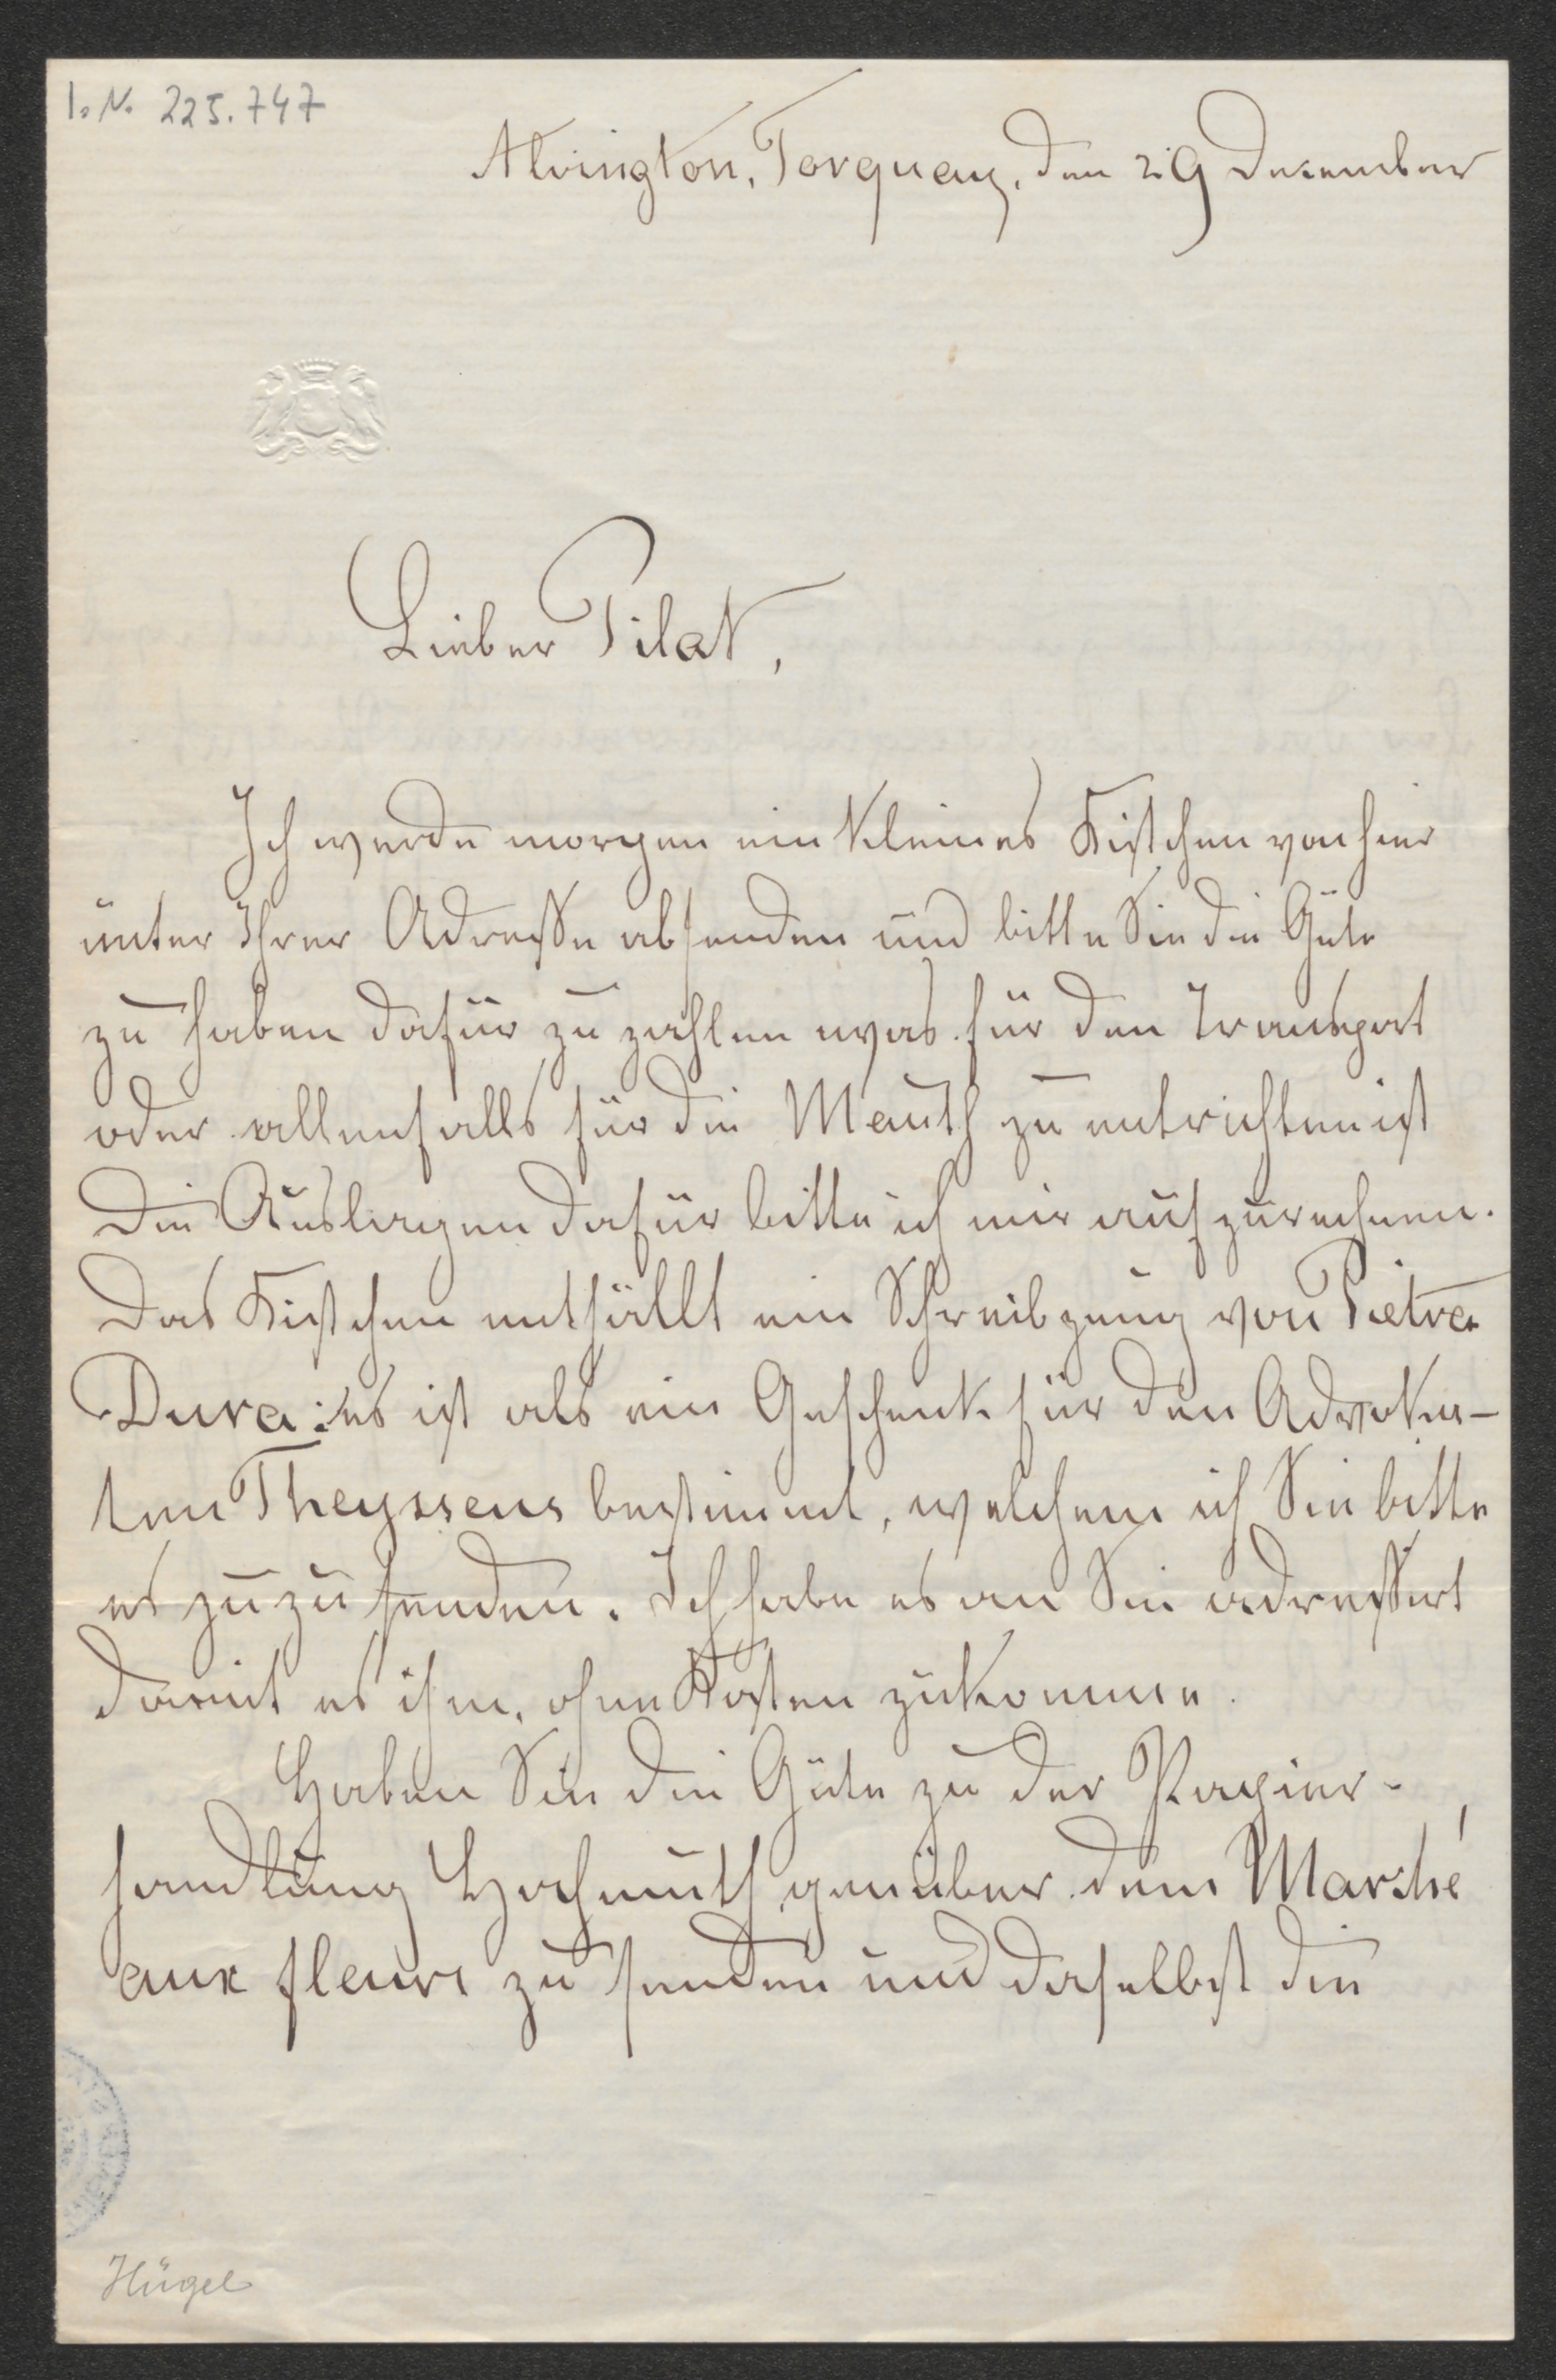 I. N. 225.747
Alvington, Torquay, den 29 Dezember
Lieber Pilat,
Ich werde morgen ein kleines Kistchen von hier
unter Ihrer Adresse absenden und bitte Sie die Güte
zu haben dafür zu zahlen was für den Transport
oder allenfalls für die Mauth zu entrichten ist
Die Auslagen dafür bitte ich mir aufzurechnen.
Das Kistchen enthällt ein Schreibzeug von Pietra
Dura: es ist als ein Geschenk für den Advoka-
ten Theyssens bestimmt, welchem ich Sie bitte
es zuzusenden. Ich habe es an Sie adressirt
damit es ihm, ohne Kosten zukomme.
Haben Sie die Güte zu der Papier-
handlung Hochmuth genüber dem Marché
aux fleurs zu senden und daselbst die
Hügel